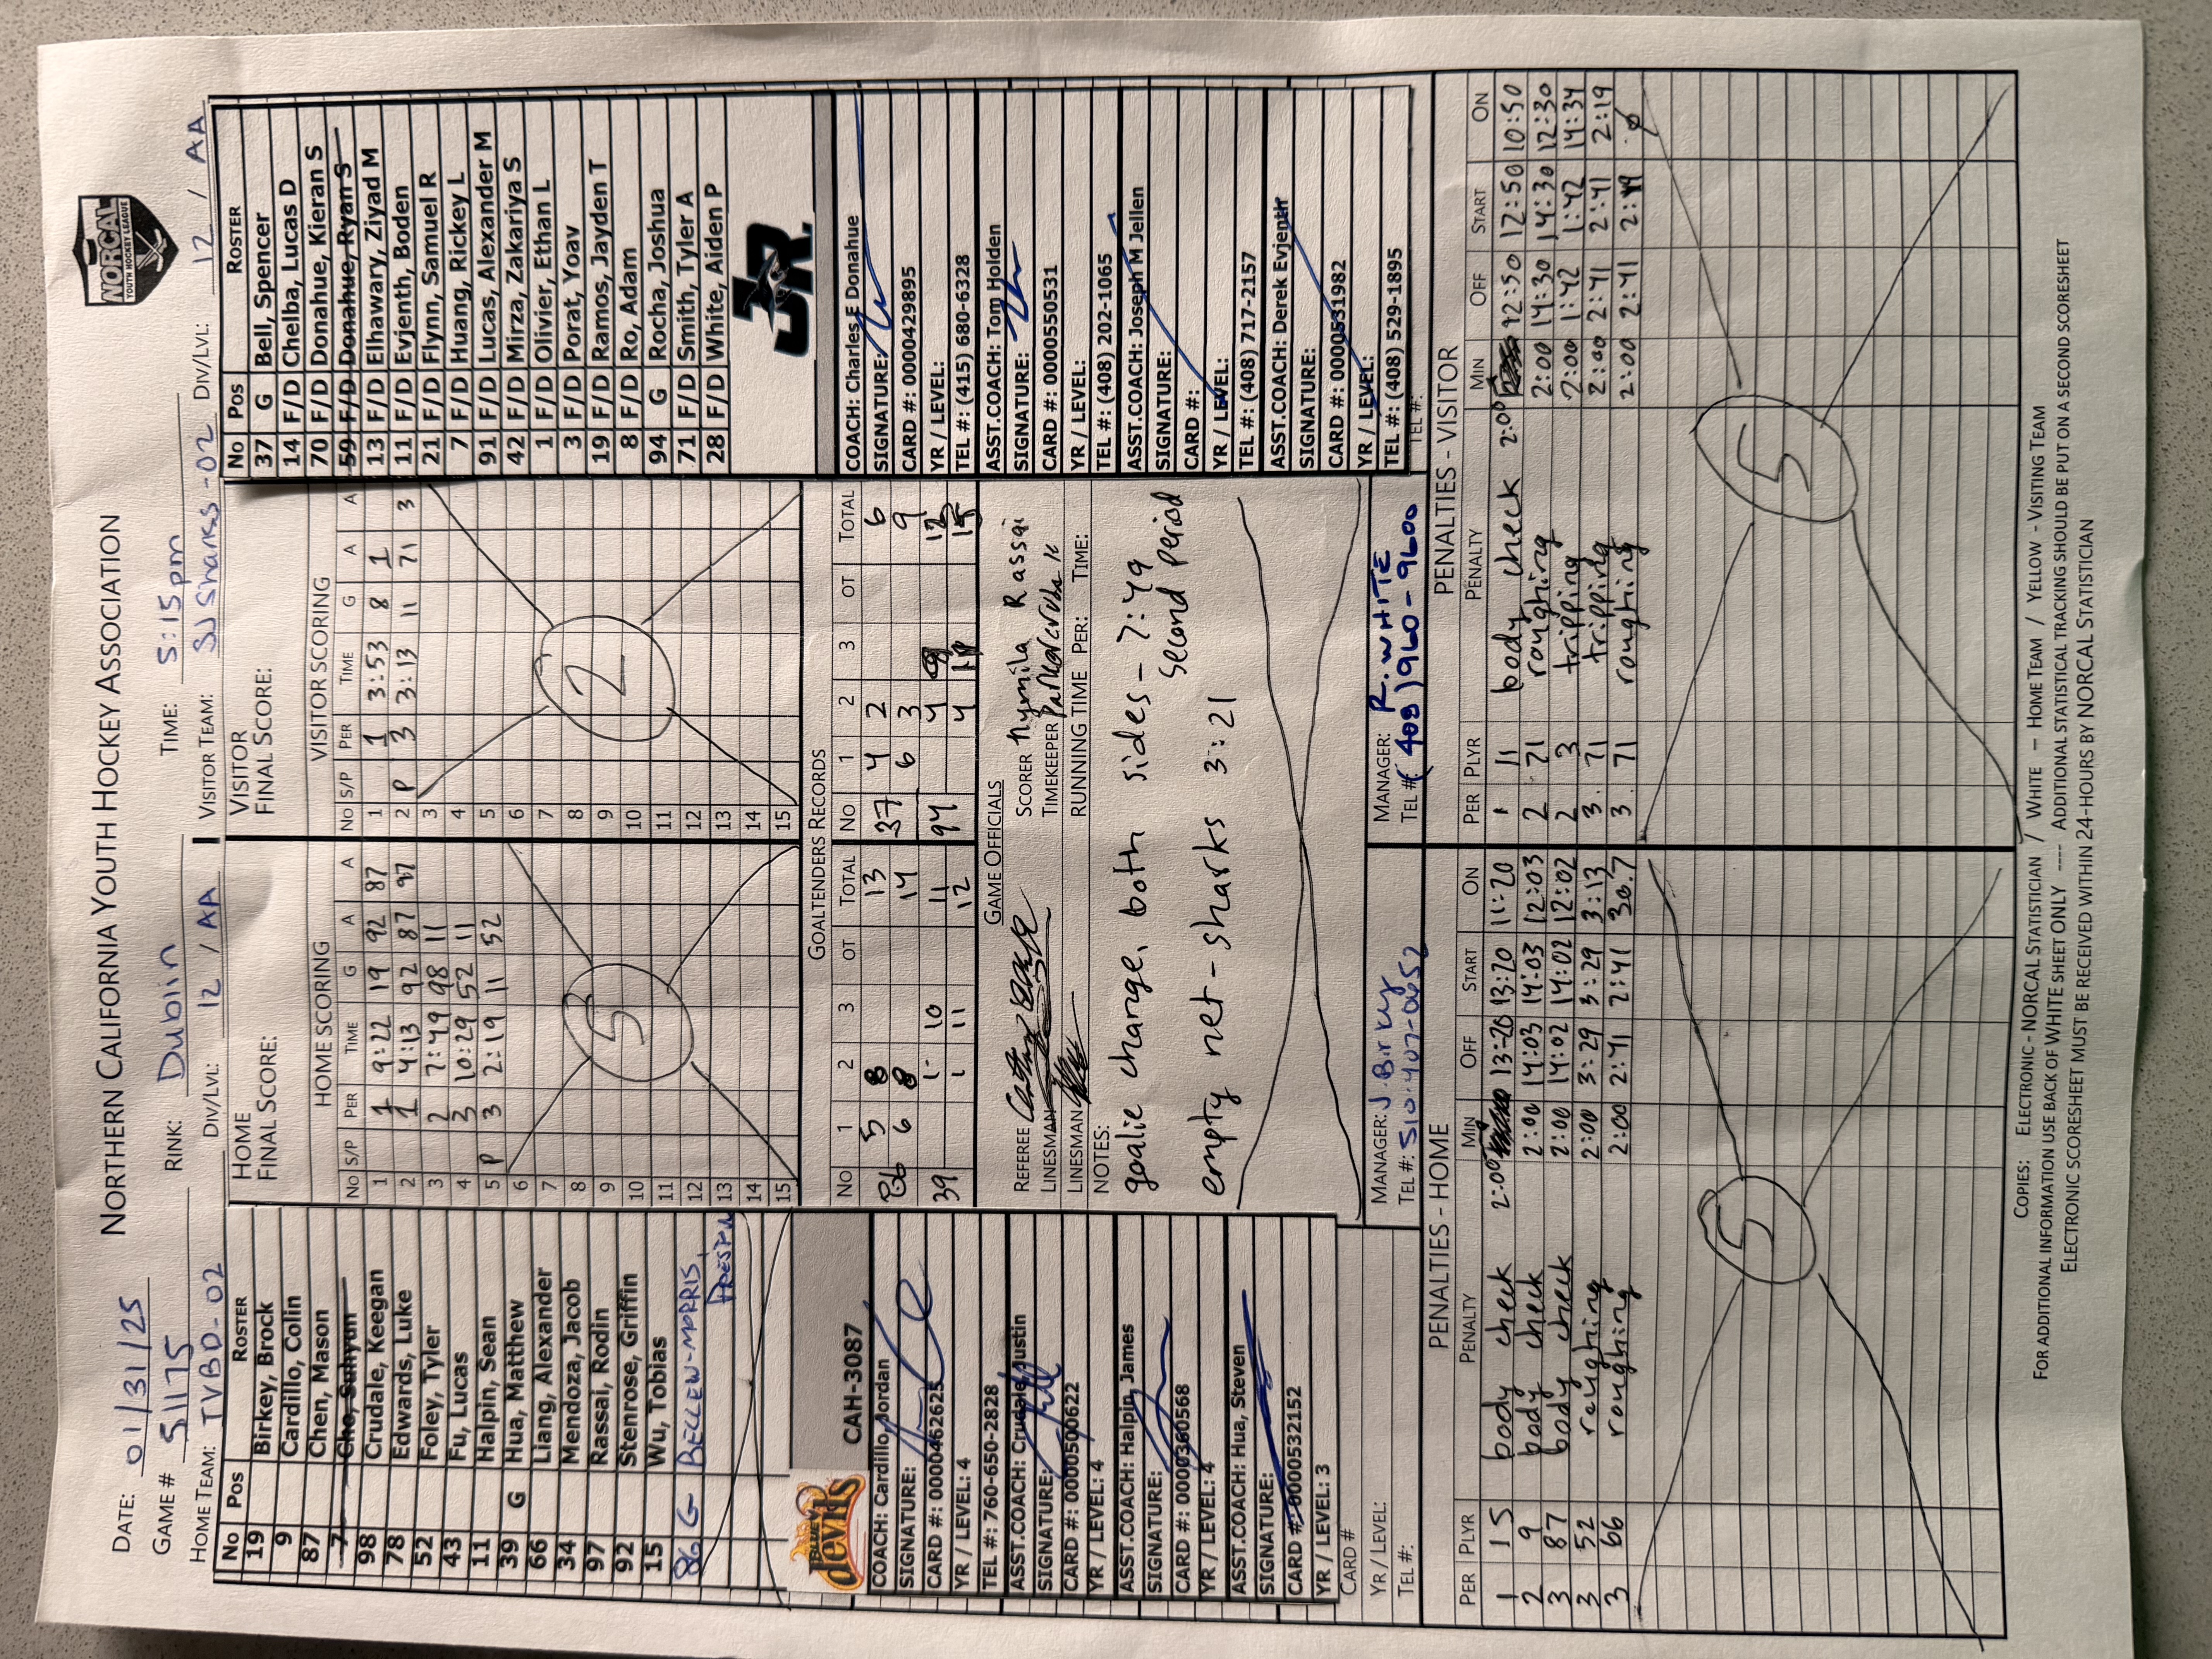 NORTHERN CALIFORNIA YOUTH HOCKEY ASSOCIATION
NORCAL
YOUTH HOCKEY LEAGUE
DATE: 01/31/25
GAME # 51175
RINK: Dublin
TIME: 5:15pm
HOME TEAM: TVBD-02
DIV/LVL: 12 / AA
VISITOR TEAM: SJ Sharks-02
DIV/LVL: 12 / AA
No Pos ROSTER
19 Birkey, Brock
9 Cardillo, Colin
87 Chen, Mason
7 Cho, Suhyun
98 Crudale, Keegan
78 Edwards, Luke
52 Foley, Tyler
43 Fu, Lucas
11 Halpin, Sean
39 G Hua, Matthew
66 Liang, Alexander
34 Mendoza, Jacob
97 Rassai, Rodin
92 Stenrose, Griffin
15 Wu, Tobias
86 G BELLEW-MORRIS,
HOME
FINAL SCORE:
HOME SCORING
No S/P PER TIME G A A
1 1 9:22 19 92 87
2 1 4:13 92 87 97
3 2 7:49 98 11
4 3 10:29 52 11
5 P 3 2:19 11 52
6
7
8
9
10
11
12
13
14
15
5
VISITOR
FINAL SCORE:
VISITOR SCORING
No S/P PER TIME G A A
1 1 3:53 8 1
2 P 3 3:13 11 71 3
3
4
5
6
7
8
9
10
11
12
13
14
15
2
No Pos ROSTER
37 G Bell, Spencer
14 F/D Chelba, Lucas D
70 F/D Donahue, Kieran S
59 F/D Donahue, Ryan S
13 F/D Elhawary, Ziyad M
11 F/D Evjenth, Boden
21 F/D Flynn, Samuel R
7 F/D Huang, Rickey L
91 F/D Lucas, Alexander M
42 F/D Mirza, Zakariya S
1 F/D Olivier, Ethan L
3 F/D Porat, Yoav
19 F/D Ramos, Jayden T
8 F/D Ro, Adam
94 G Rocha, Joshua
71 F/D Smith, Tyler A
28 F/D White, Aiden P
JR.
BLUE
devils
CAH-3087
COACH: Cardillo, Jordan
SIGNATURE:
CARD #: 0000462625
YR / LEVEL: 4
TEL #: 760-650-2828
ASST.COACH: Crudale, Justin
SIGNATURE:
CARD #: 0000500622
YR / LEVEL: 4
ASST.COACH: Halpin, James
SIGNATURE:
CARD #: 0000360568
YR / LEVEL: 4
ASST.COACH: Hua, Steven
SIGNATURE:
CARD #: 0000532152
YR / LEVEL: 3
CARD #
YR / LEVEL:
TEL #:
GOALTENDERS RECORDS
No 1 2 3 OT TOTAL
5 8 13
86 6 8 14
1 10 11
39 1 11 12
No 1 2 3 OT TOTAL
37 4 2 6
6 3 9
4
94 4
GAME OFFICIALS
REFEREE
LINESMAN
LINESMAN
SCORER Rassai
TIMEKEEPER
RUNNING TIME PER: TIME:
NOTES:
goalie change, both sides - 7:49
second period
empty net - sharks 3:21
MANAGER: J. Birky
TEL #: 510-407-0652
MANAGER: R. WHITE
TEL #: (408) 960-9600
COACH: Charles E Donahue
SIGNATURE:
CARD #: 0000429895
YR / LEVEL:
TEL #: (415) 680-6328
ASST.COACH: Tom Holden
SIGNATURE:
CARD #: 0000550531
YR / LEVEL:
TEL #: (408) 202-1065
ASST.COACH: Joseph M Jellen
SIGNATURE:
CARD #:
YR / LEVEL:
TEL #: (408) 717-2157
ASST.COACH: Derek Evjenth
SIGNATURE:
CARD #: 0000531982
YR / LEVEL:
TEL #: (408) 529-1895
TEL #:
PENALTIES - HOME
PER PLYR PENALTY MIN OFF START ON
1 15 body check 2:00 13:20 13:20 11:20
2 9 body check 2:00 14:03 14:03 12:03
3 87 body check 2:00 14:02 14:02 12:02
3 52 roughing 2:00 3:29 3:29 3:13
3 66 roughing 2:00 2:41 2:41 30.7
5
PENALTIES - VISITOR
PER PLYR PENALTY MIN OFF START ON
1 11 body check 2:00 12:50 12:50 10:50
2 71 roughing 2:00 14:30 14:30 12:30
2 3 tripping 2:00 1:42 1:42 14:34
3 71 tripping 2:00 2:41 2:41 2:19
3 71 roughing 2:00 2:41
5
COPIES: ELECTRONIC - NORCAL STATISTICIAN / WHITE – HOME TEAM / YELLOW - VISITING TEAM
FOR ADDITIONAL INFORMATION USE BACK OF WHITE SHEET ONLY ---- ADDITIONAL STATISTICAL TRACKING SHOULD BE PUT ON A SECOND SCORESHEET
ELECTRONIC SCORESHEET MUST BE RECEIVED WITHIN 24-HOURS BY NORCAL STATISTICIAN